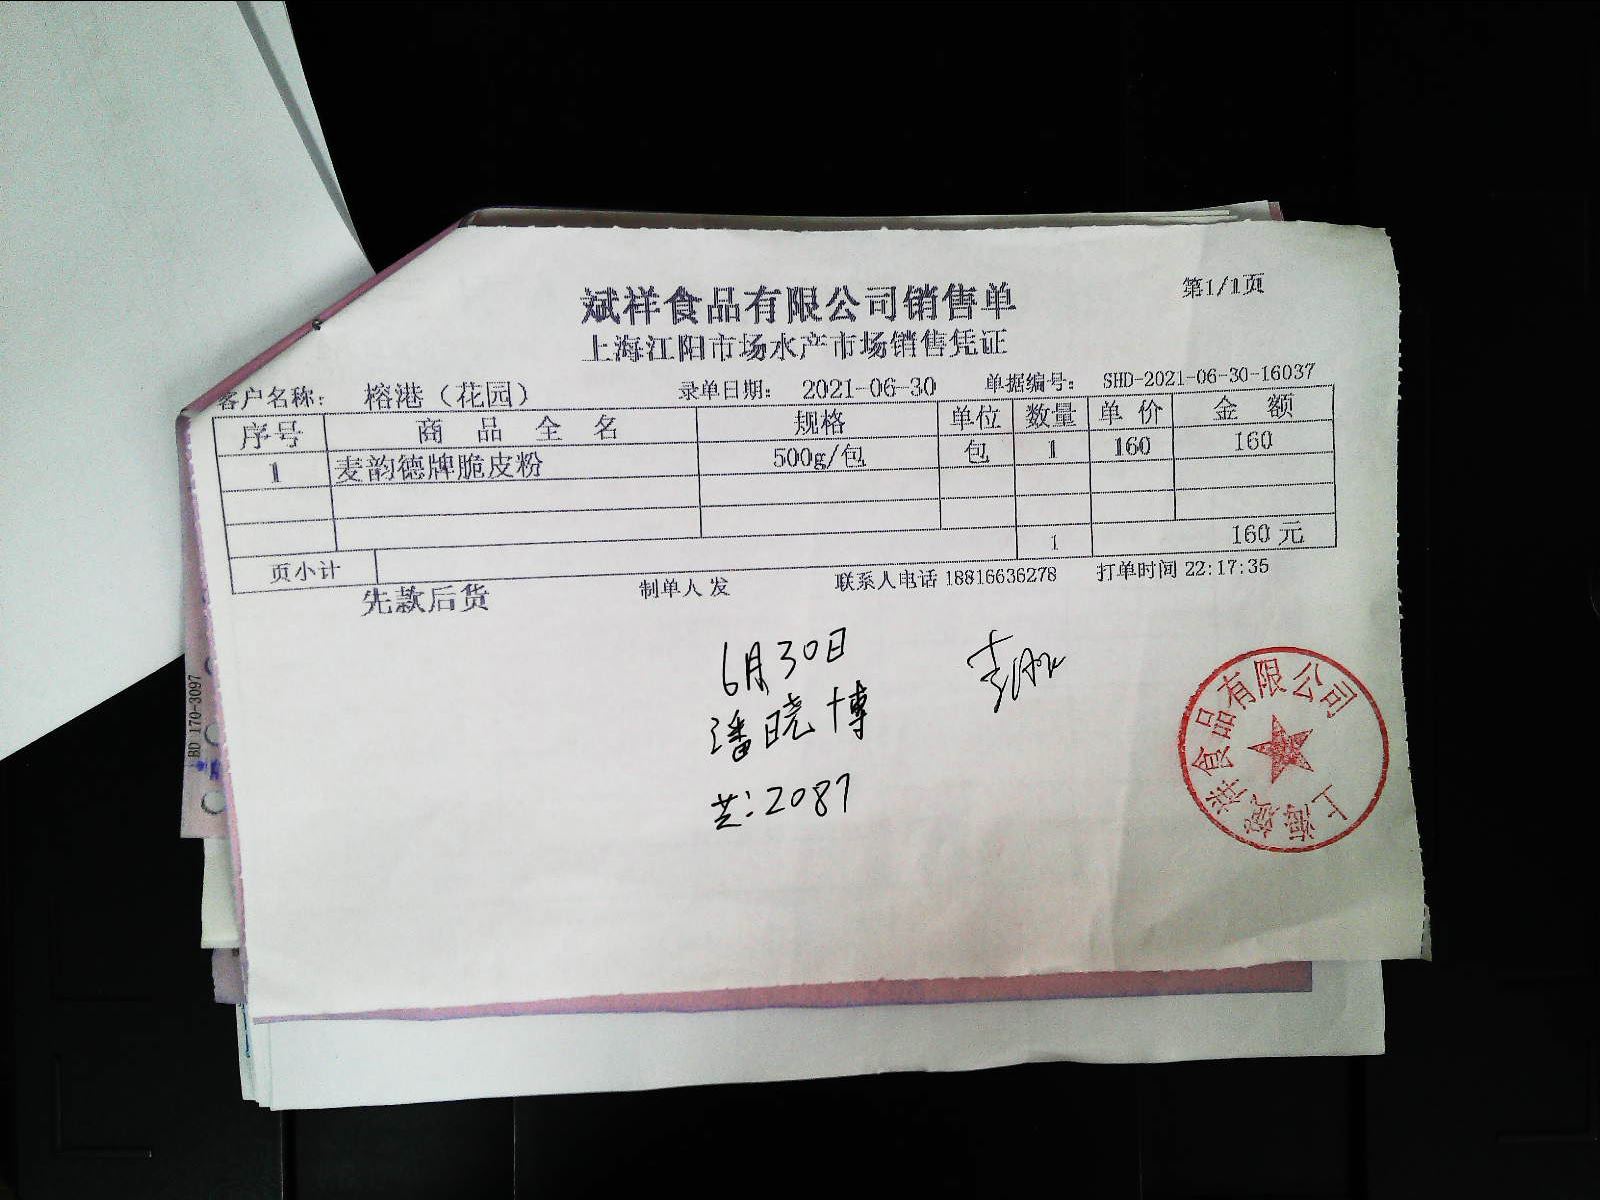 斌祥食品有限公司销售单
第1/1页
上海江阳市场水产市场销售凭证
客户名称： 榕港（花园） 录单日期： 2021-06-30 单据编号： SHD-2021-06-30-16037
序号 商品全名 规格 单位 数量 单价 金额
1 麦韵德牌脆皮粉 500g/包 包 1 160 160
页小计 1 160元
先款后货 制单人 发 联系人电话 18816636278 打单时间 22:17:35
6月30日
潘晓博
2087
上海斌祥食品有限公司
BD 170-3097